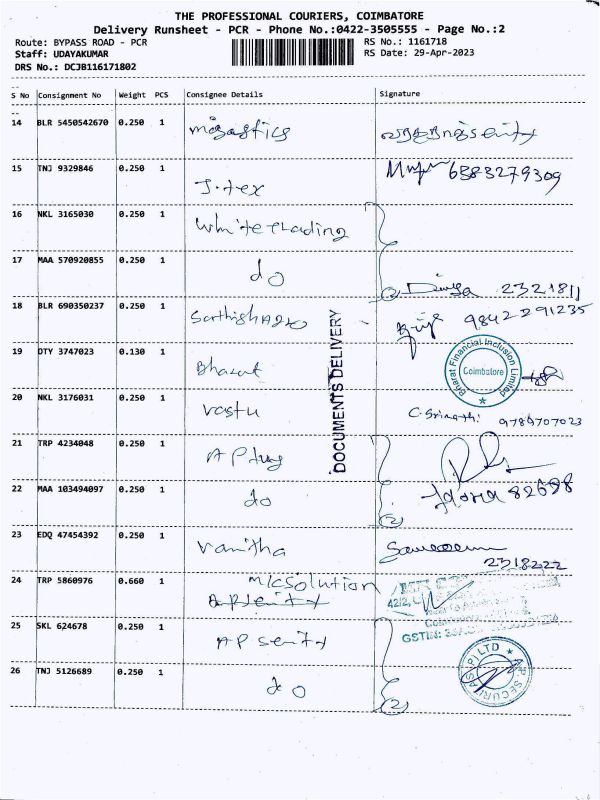 THE PROFESSIONAL COURIERS, COIMBATORE
Delivery Runsheet - PCR - Phone No.:0422-3505555 - Page No.:2
Route: BYPASS ROAD - PCR
Staff: UDAYAKUMAR
DRS No.: DCJB116171802
RS No.: 1161718
RS Date: 29-Apr-2023
S No Consignment No Weight PCS Consignee Details Signature
14 BLR 5450542670 0.250 1
15 TNJ 9329846 0.250 1 J.tex 6383279309
16 NKL 3165030 0.250 1 White trading
17 MAA 570920855 0.250 1 do (2) Divya 2321811
18 BLR 690350237 0.250 1 9842291235
19 OTY 3747023 0.130 1 Bharat
Bharat Financial Inclusion Limited
Coimbatore
20 NKL 3176031 0.250 1 vastu C. Srinath: 9789707023
DOCUMENTS DELIVERY
21 TRP 4234048 0.250 1
22 MAA 103494097 0.250 1 do (2) 82698
23 EDQ 47454392 0.250 1 vanitha
2318222
24 TRP 5860976 0.660 1 micsolution
GSTIN:
25 SKL 624678 0.250 1 AP
26 TNJ 5126689 0.250 1 do (2)